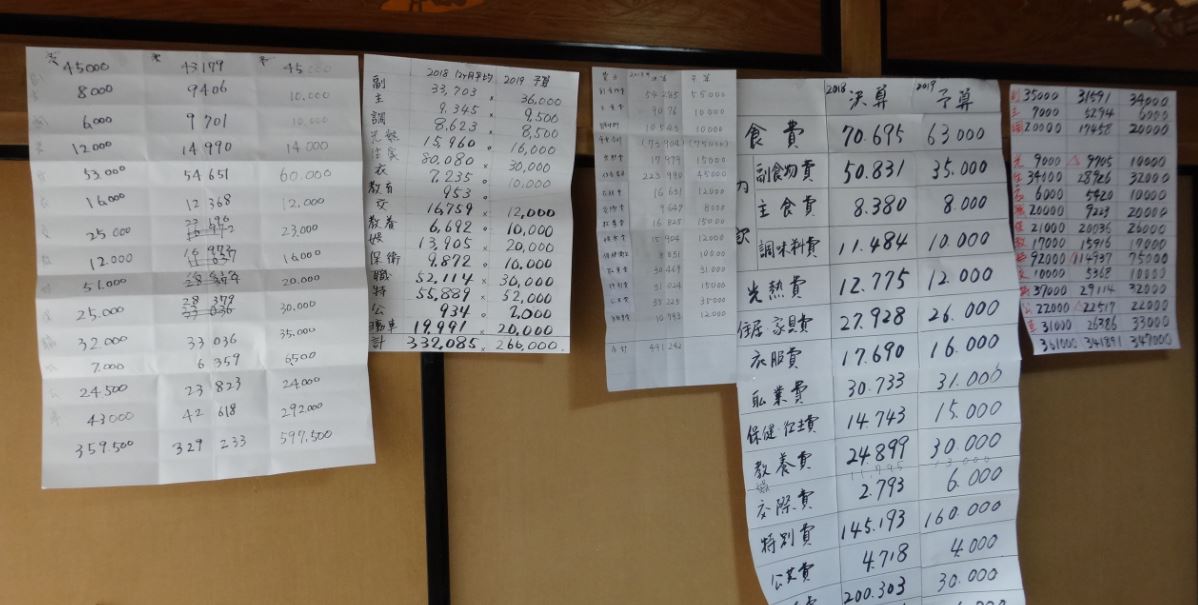 45000 43179 45000
8000 9406 10,000
6,000 9701 10,000
12,000 14,990 14000
53,000 54651 60.000
16,000 12368 12,000
25,000 23,000
12.000 16,000
51.000 20.000
25.000 28 379 30.000
32.000 33036 35.000
7.000 6359 6,500
24,500 23823 24000
43000 42618 292.000
359.500 329 233 597,500
2018 12ヶ月平均 2019 予算
副 33,703 × 36,000
主 9.345 × 9,500
調 8,623 × 8,500
光熱 15,960 ○ 16,000
住家 80,080 × 30,000
衣 7,235 ○ 10,000
教育 953 ○
交 16,759 × 12,000
教養 6,692 ○ 10,000
娯 13,905 × 20,000
保衛 9.872 ○ 16,000
職 52,114 × 30,000
特 55,889 × 52,000
公 934 ○ 2,000
自動車 19,991 × 20,000
計 332,085 × 266,000
54,285 55000
9076 10,000
10,545 10000
(73,906) (75000)
17,979 15000
223,990 45000
16,631 12000
9,649 8000
16,825 15000
15,904 12000
8,051 10000
30,469 31,000
31,024 15000
33,225 35000
10,793 12000
合計 491,242
2018 決算 2019 予算
食費 70.695 63.000
内訳
副食物費 50.831 35.000
主食費 8.380 8.000
調味料費 11.484 10.000
光熱費 12.775 12.000
住居・家具費 27.928 26.000
衣服費 17.690 16.000
職業費 30.733 31.000
保健・衛生費 14.743 15.000
教養費 24.899 30.000
交際費 2.793 6.000
特別費 145.193 160.000
公共費 4.718 4.000
200.303 30.000
副 35000 31591 34000
主 7000 5294 6000
調 20000 17458 20000
光 9000 △ 9705 10000
住 34000 28926 32000
衣 6000 5420 10000
20000 9223 20000
保 21000 20036 26000
教 17000 15916 17000
特 92000 114937 75000
交 10000 5368 10000
職 37000 29114 32000
公 22000 △ 22517 22000
車 31000 26386 33000
361000 341891 347000